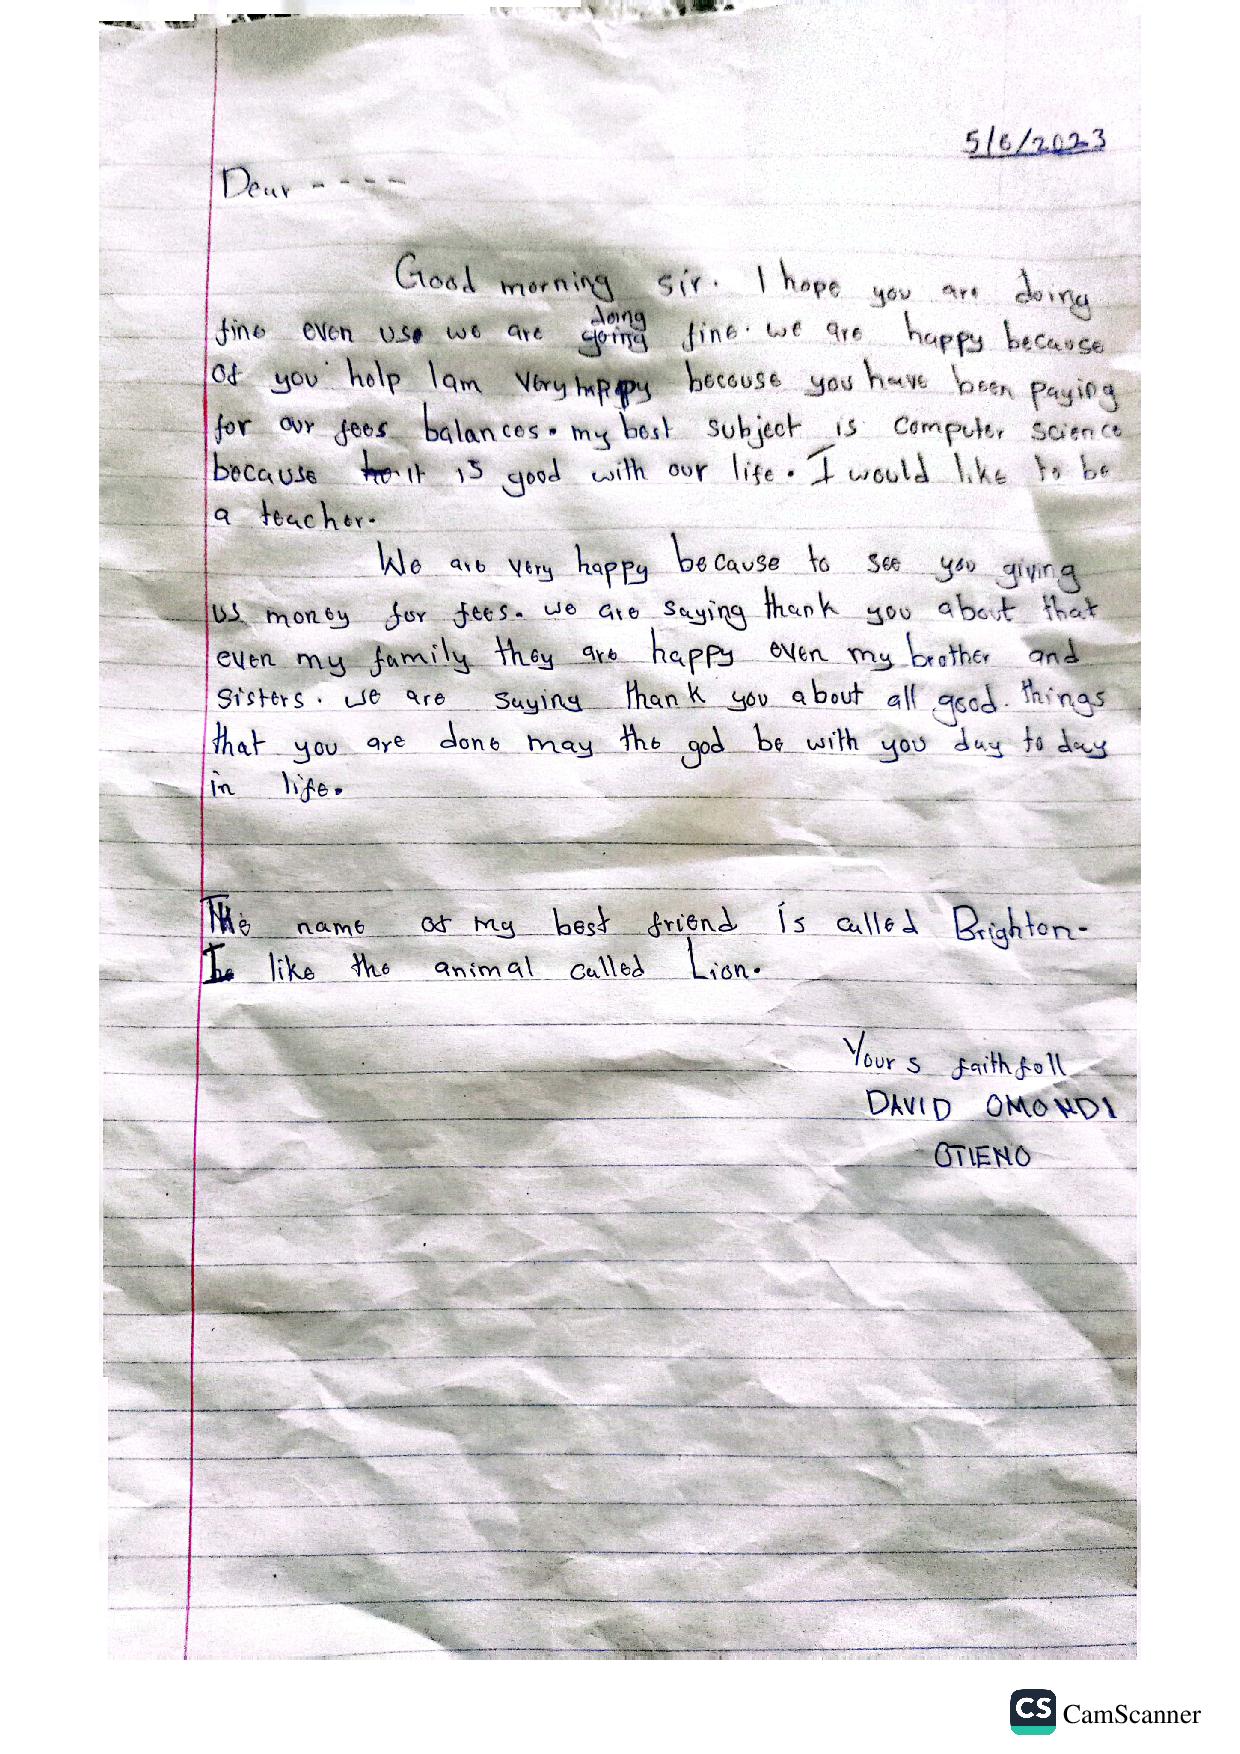 5/6/2023
Dear ----
Good morning sir. I hope you are doing
fine even use we are doing fine. we are happy because
of you help I am very happy because you have been paying
for our fees balances. my best subject is computer science
because it is good with our life. I would like to be
a teacher.
We are very happy because to see you giving
us money for fees. we are saying thank you about that
even my family they are happy even my brother and
sisters. we are saying thank you about all good things
that you are done may the god be with you day to day
in life.
The name of my best friend is called Brighton.
I like the animal called Lion.
Yours faithfoll
DAVID OMONDI
OTIENO
CS CamScanner